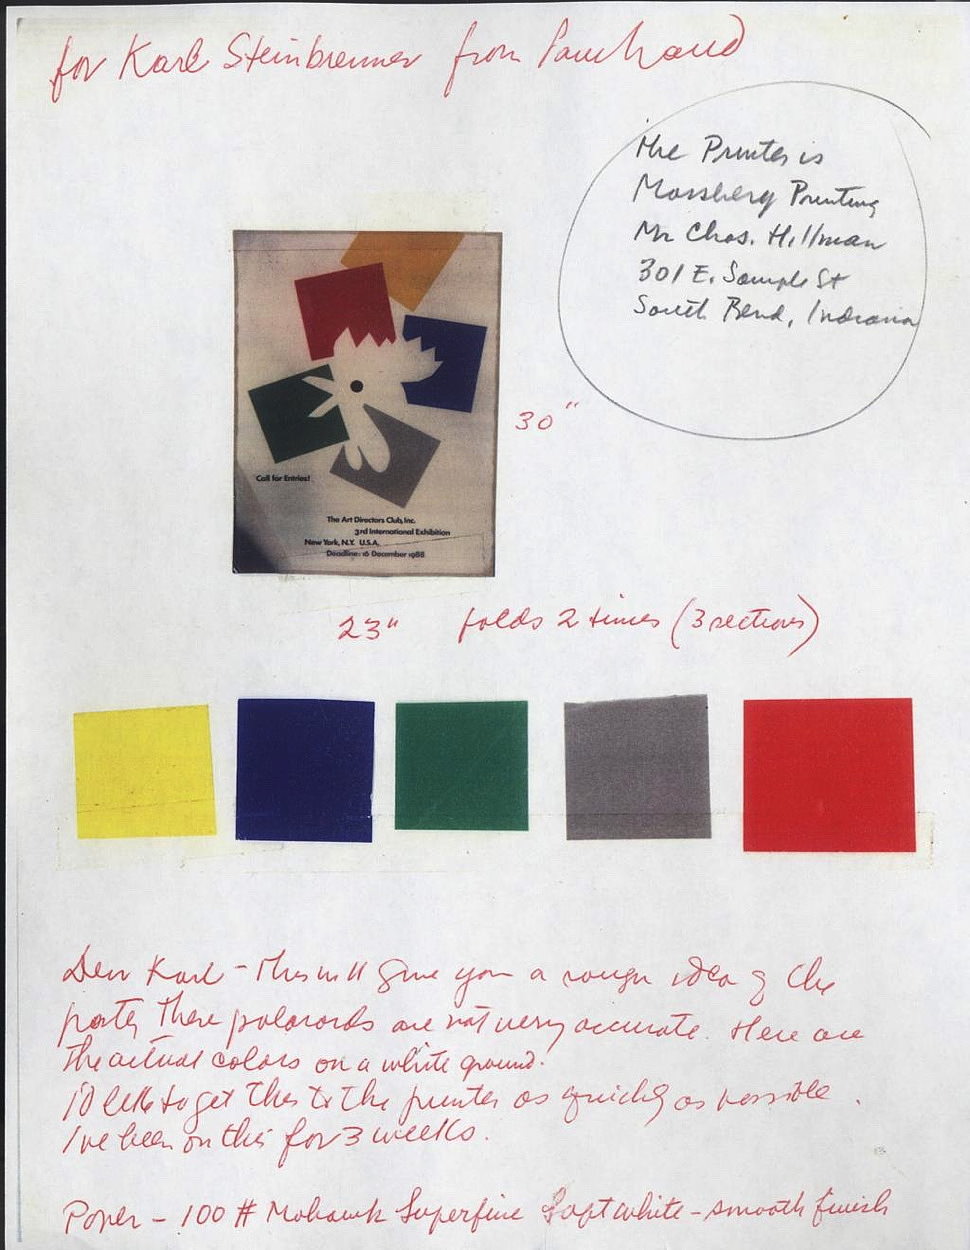 for Karl Steinbrenner from Paul Rand
The Printer is
Mossberg Printing
Mr Chas. Hillman
301 E. Sample St
South Bend, Indiana
30"
Call for Entries!
The Art Directors Club, Inc.
3rd International Exhibition
New York, N.Y. U.S.A.
Deadline: 16 December 1988
23" folds 2 times (3 sections)
Dear Karl - This will give you a rough idea of the
poster. These polaroids are not very accurate. Here are
the actual colors on a white ground.
I'd like to get this to the printer as quickly as possible.
I've been on this for 3 weeks.
Paper - 100 # Mohawk Superfine Soft white - smooth finish